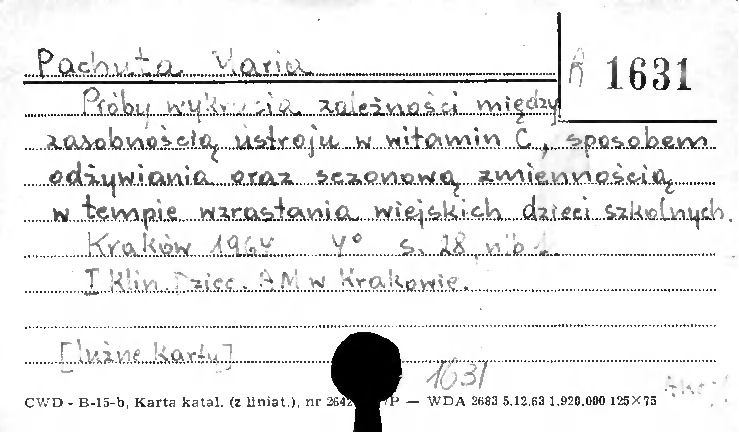 Pachuta Maria
R 1631
Próby wykrycia zależności między
zasobnością ustroju w witamin C, sposobem
odżywiania oraz sezonową zmiennością
w tempie wzrastania wiejskich dzieci szkolnych.
Kraków 196 4° s. 28, nlb 1.
I Klin. Dziec. AM w Krakowie.
[luźne karty]
1631
CWD - B-15-b, Karta katal. (z liniat.), nr 2642 P — WDA 2683 5.12.63 1.920.000 125×75